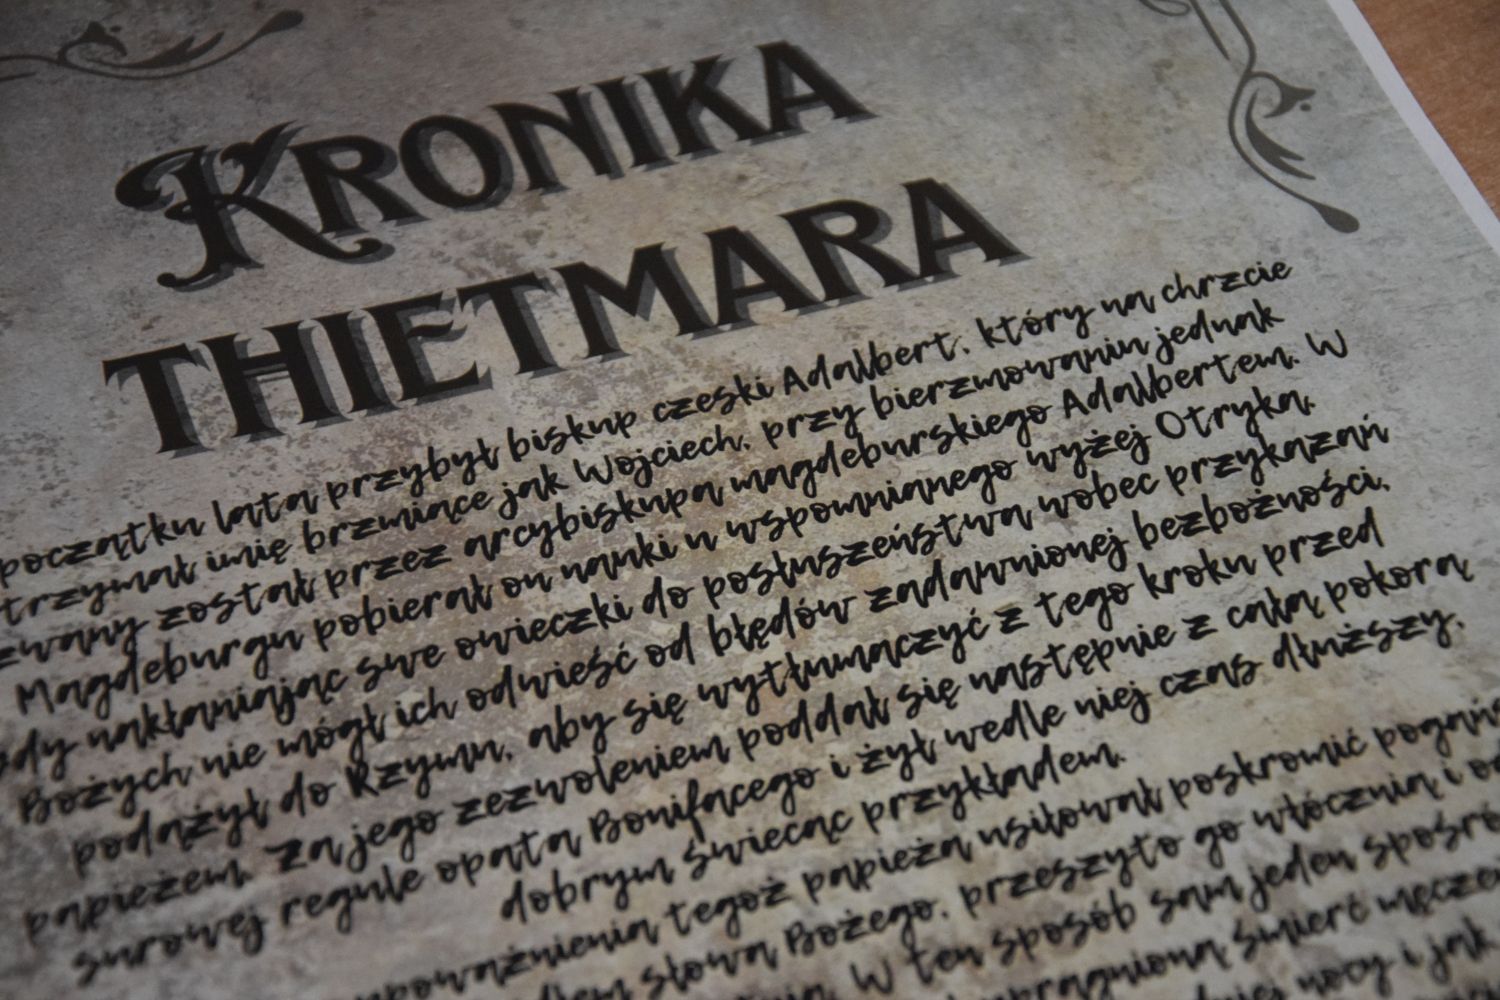 KRONIKA
THIETMARA
początku lata przybył biskup czeski Adalbert, który na chrzcie
trzymał imię brzmiące jak Wojciech, przy bierzmowaniu jednak
zwany został przez arcybiskupa magdeburskiego Adalbertem. W
Magdeburgu pobierał on nauki u wspomnianego wyżej Otryka.
dy nakłaniając swe owieczki do posłuszeństwa wobec przykazań
Bożych nie mógł ich odwieść od błędów zadawnionej bezbożności,
podążył do Rzymu, aby się wytłumaczyć z tego kroku przed
papieżem. Za jego zezwoleniem poddał się następnie z całą pokorą
surowej regule opata Bonifacego i żył wedle niej czas dłuższy,
dobrym świecąc przykładem.
poważnienia tegoż papieża usiłował poskromić pogańs
słowa Bożego, przeszyto go włócznią i od
W ten sposób sam jeden spośró
upragnioną śmierć męczeń
nocy i jak